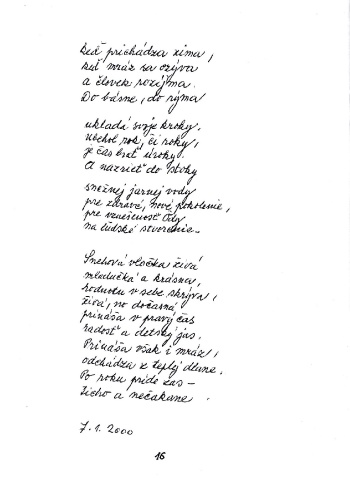 Keď prichádza zima,
keď mráz sa ozýva
a človek rozjíma.
Do básne, do rýma
ukladá svoje kroky.
Uchol rok, či roky,
je čas brať úroky.
A nazrieť do stoky
snežnej jarnej vody
pre zdravé, nové pokolenie,
pre vznešenosť Ódy
na ľudské stvorenie...
Snehová vločka živá
mladučká a krásna,
hodnotu v sebe skrýva,
živá, no dočasná
prináša v pravý čas
radosť a detský jas.
Prináša však i mráz,
odchádza z teplej dlane.
Po roku príde zas -
ticho a nečakane.
7.1.2000
16